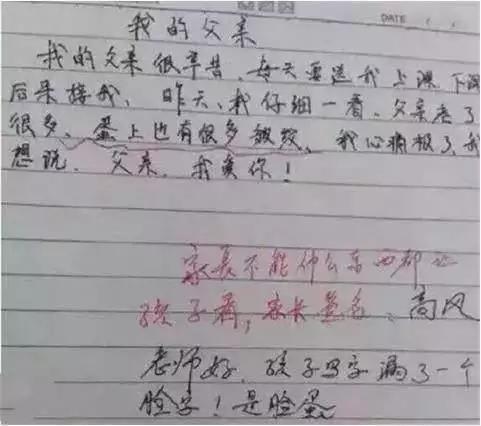 DATE
我的父亲
我的父亲很辛苦、每天要送我上课、下课
后来接我、昨天、我仔细一看、父亲老了
很多、蛋上也有很多皱纹、我心痛极了、我
想说、父亲、我爱你!
家长不能什么东西都让
孩子看,家长签名、高风
老师好、孩子写字漏了一个
脸字!是脸蛋